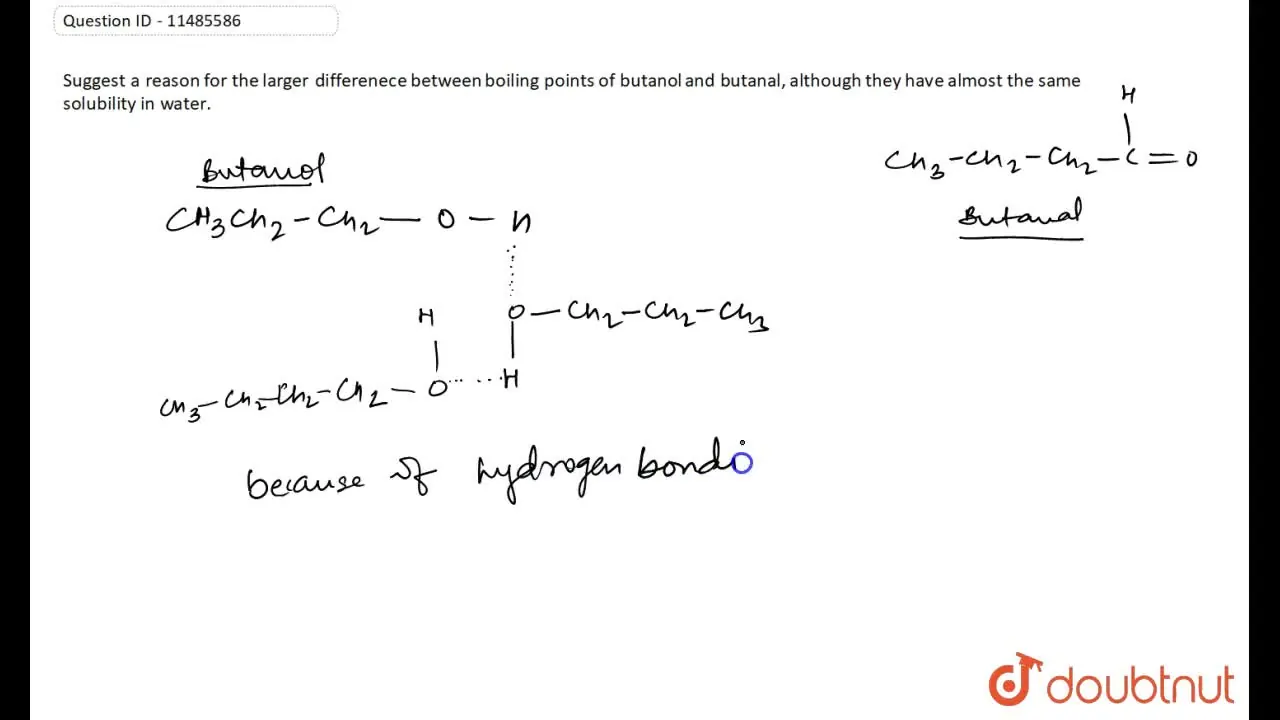 Question ID - 11485586
Suggest a reason for the larger differenece between boiling points of butanol and butanal, although they have almost the same
solubility in water.
H
CH3-CH2-CH2-C=O
Butanal
Butanol
CH3CH2-CH2-O-H
O-CH2-CH2-CH3
H
H
CH3-CH2-CH2-CH2-O......H
because of hydrogen bondi
doubtnut